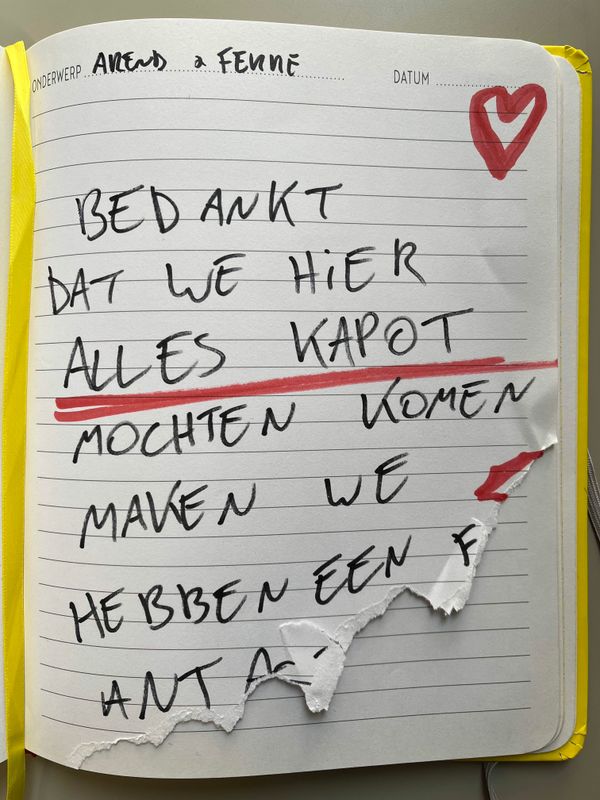 ONDERWERP AREND & FENNE DATUM
BEDANKT
DAT WE HiER
ALLES KAPOT
MOCHTEN KOMEN
MAKEN WE
HEBBEN EEN F
ANTA